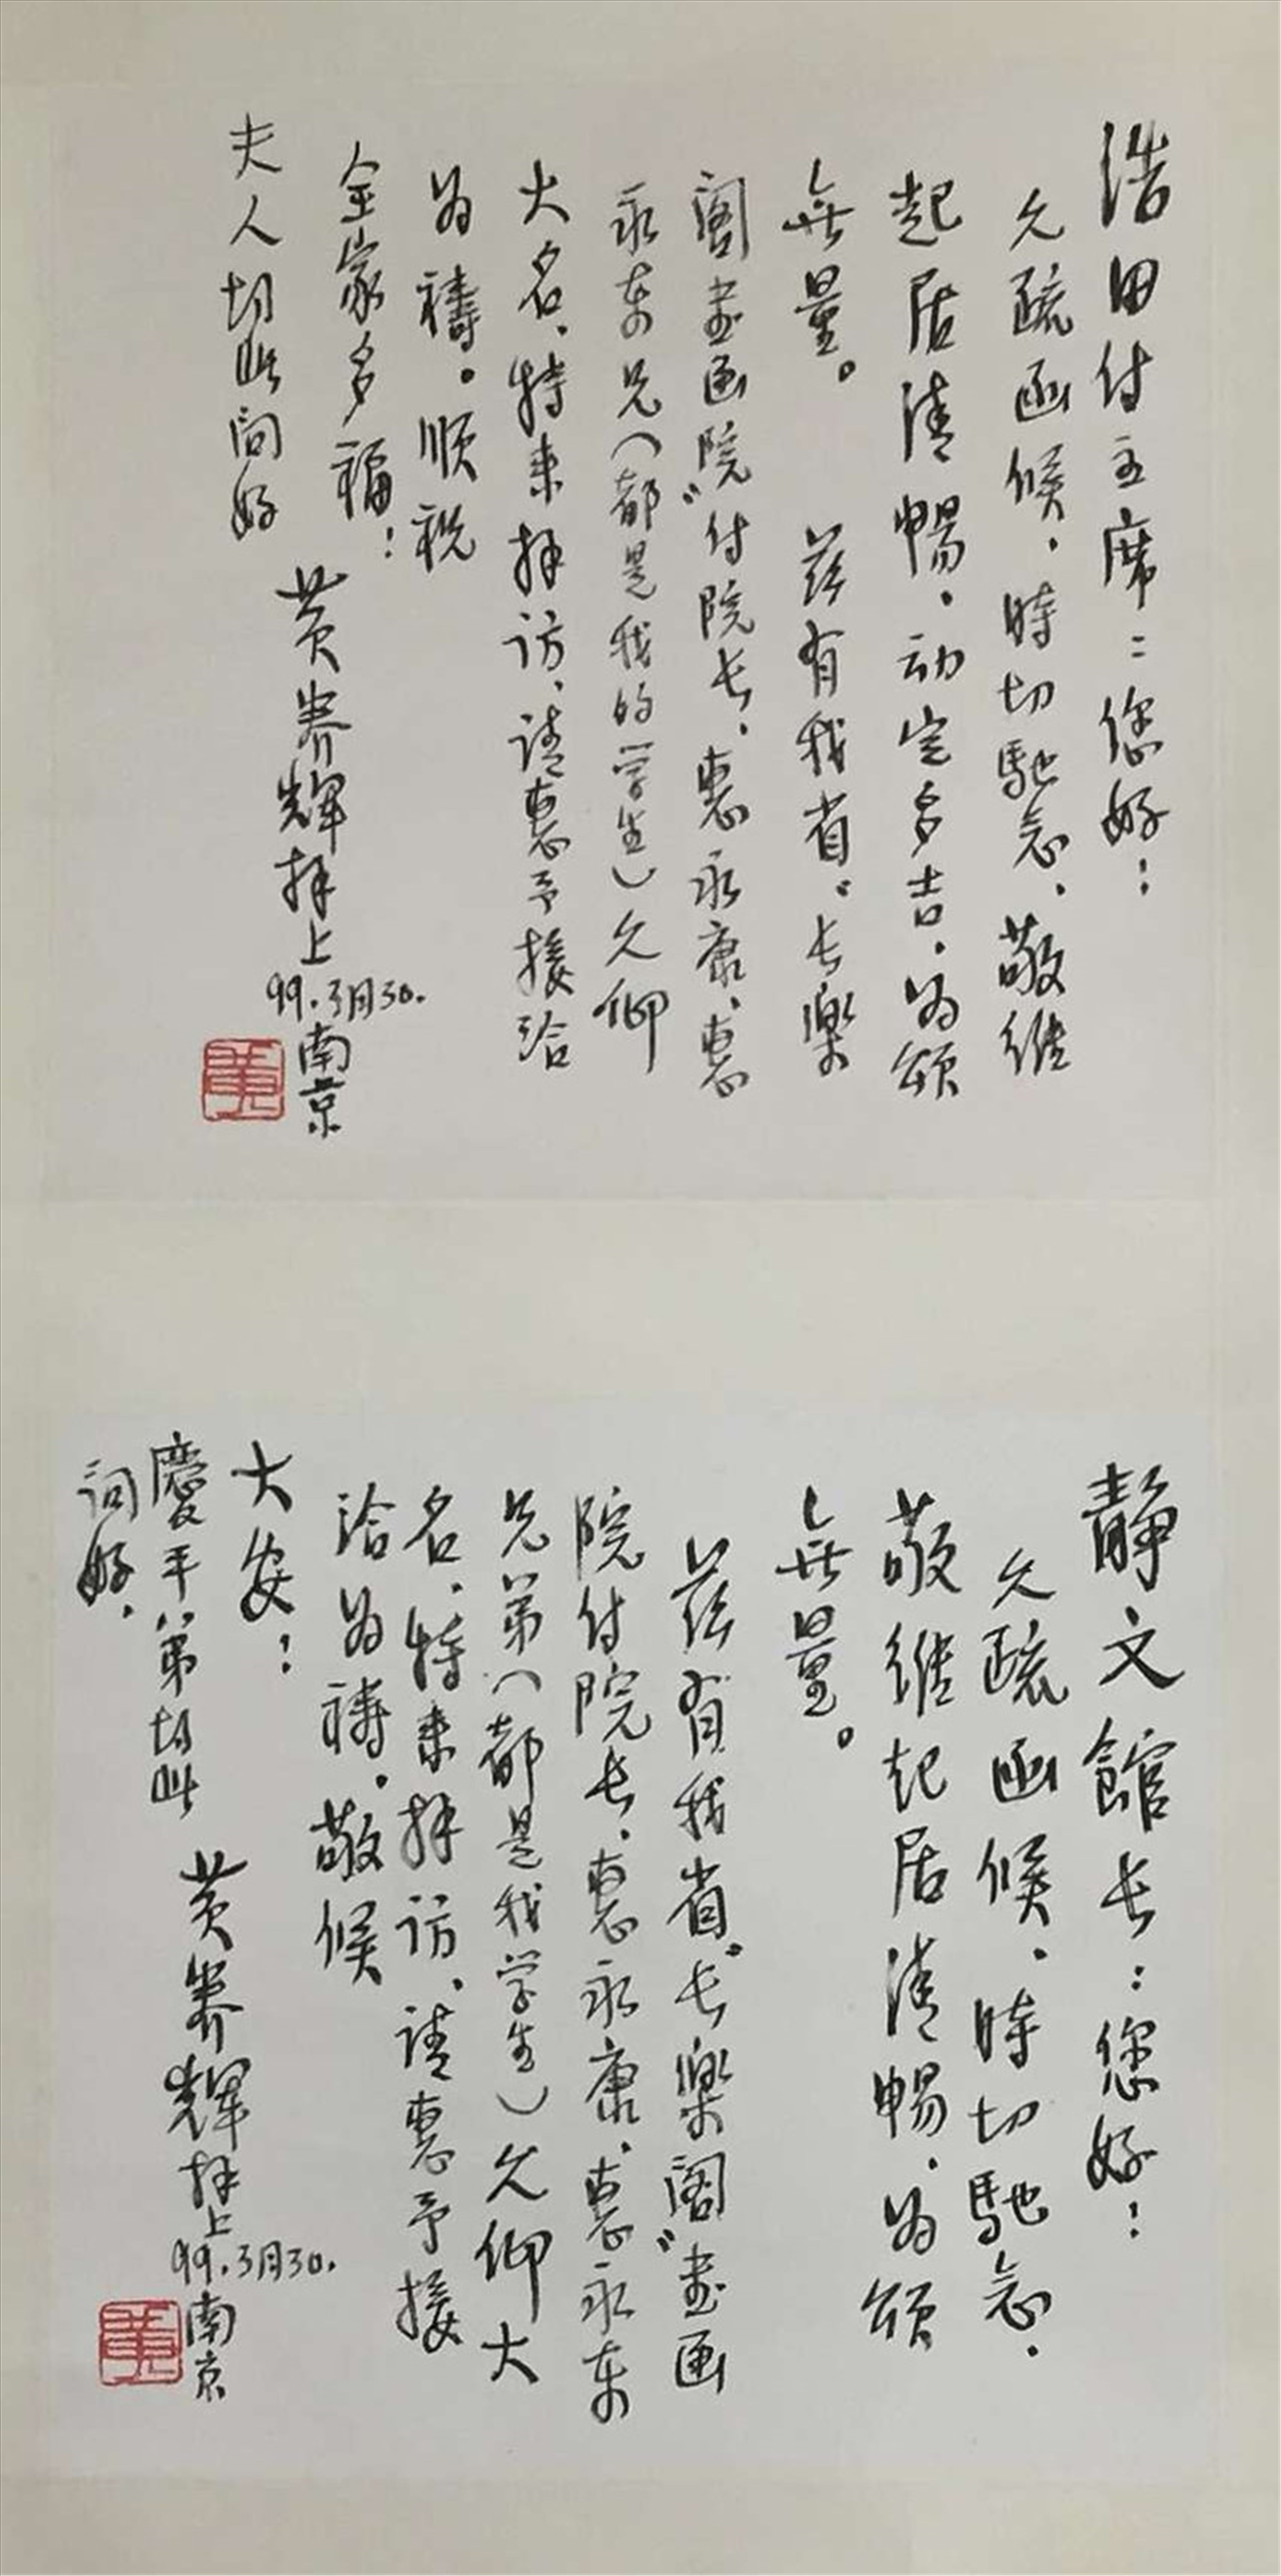 浩田付主席：您好！
久疏函候，時切馳念，敬维
起居清暢，动定多吉，为颂
無量。 兹有我省“长樂
阁画画院”付院长，惠永康、惠
永东兄（都是我的学生）久仰
大名，特来拜访，请惠予接洽
为禱。顺祝
全家多福！
夫人均此问好
黄养辉拜上
99.3月30.
南京
静文館长：您好！
久疏函候，時切馳念．
敬维起居清暢，为颂
無量。
兹有我省“长樂阁”画画
院付院长，惠永康、惠永东
兄弟（都是我学生）久仰大
名，特来拜访，请惠予接
洽为禱。敬候
大安！
慶平弟均此
问好．
黄养辉拜上
99.3月30.
南京